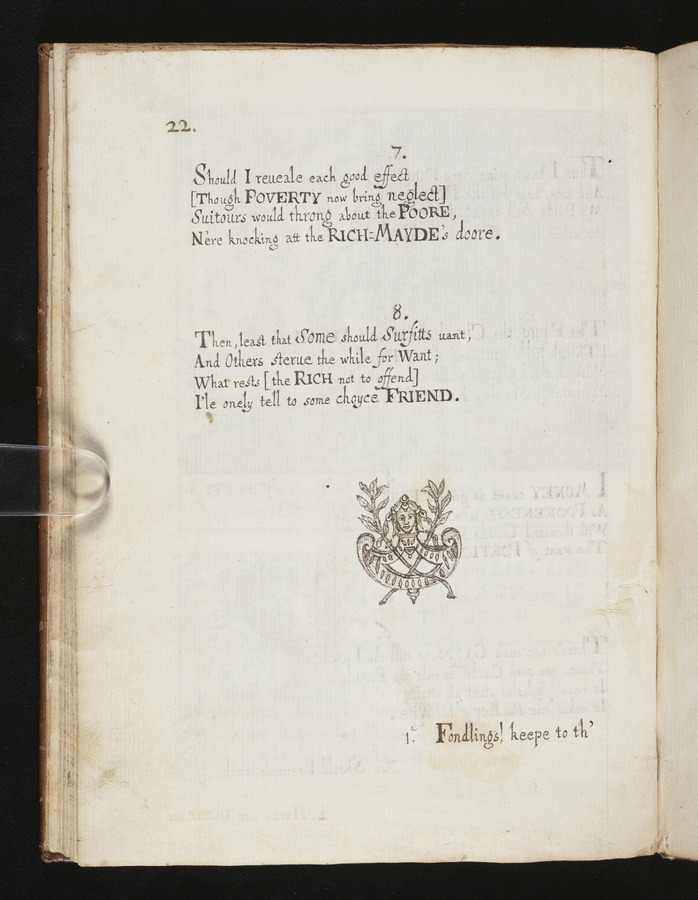 22.
7.
Should I reueale each good effect
[Though POVERTY now bring neglect]
Suitours would throng about the POORE,
N'ere knocking att the RICH=MAYDE's doore.
8.
Then, least that Some should Surfitts vant,
And Others sterue the while for Want;
What rests [the RICH not to offend]
I'le onely tell to some choyce FRIEND.
1. Fondlings! keepe to th'